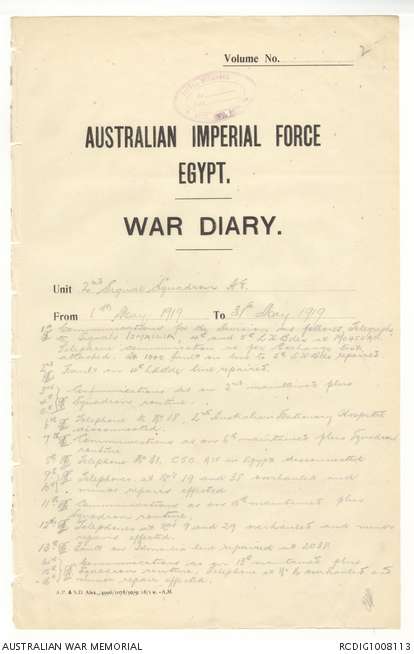 Volume No.
2
AUSTRALIAN IMPERIAL FORCE
EGYPT.
WAR DIARY.
Unit 2nd Signal Squadron AE.
From 1st May 1919 To 31st May 1919
1st Communications for the Division as follows, Telegraph
to Signals ISMAILIA, 4th and 5th L.H. Bdes at MOASCAR
Telephone communication as per Exchange
attached. At 1000 fault on line to 5th L.H. Bde repaired
2nd Fault on 4th L.H. Bde line repaired.
3rd Communications as on 2nd maintained plus
4th Squadron routine.
6th Telephone to No 18, 2nd Australian Stationary Hospital
disconnected.
7th Communications as on 6th maintained plus Squadron
routine
8th Telephone No 31, C.S.O. A.I.F. in Egypt disconnected
9th Telephones at Nos 19 and 38 overhauled and
10th minor repairs effected.
11th Communications as on 10th maintained plus
Squadron routine.
12th Telephones at Nos 9 and 29 overhauled and minor
repairs effected.
13th Fault on Ismailia line repaired at 2030
Communications as on 13th maintained plus
Squadron routine, Telephone at No overhauled and
minor repair effected.
AUSTRALIAN WAR MEMORIAL
RCDIG1008113